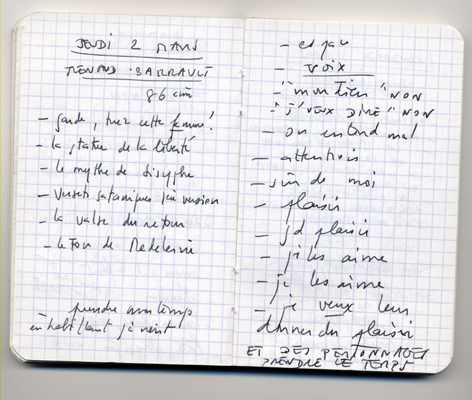 JEUDI 2 MARS
RENAUD-BARRAULT
86 cm
- garde, tuez cette femme!
- la statue de la liberté
- le mythe de Sisyphe
- versets sataniques version
- la valse du retour
- le Four de Madeleine
prendre mon temps
en habillant
- espace
- VOIX
- "mon tien" NON
- "j'VEUX DIRE" NON
- on entend mal
- attentifs
- sûr de moi
- plaisir
- gd plaisir
- je les aime
- je les aime
- je veux leur
donner du plaisir
ET DES PERSONNAGES
PRENDRE LE TEMPS